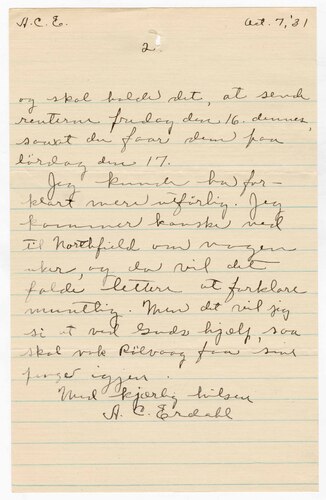 A.C.E.
Oct. 7, '31
2
og skal holde det, at sende
renterne fredag den 16. dennes,
saa at du faar dem paa
lördag den 17.
Jeg kunde ha for-
klart mere utförlig. Jeg
kommer kanske ned
til Northfield om nogen
uker, og da vil det
falde lettere at forklare
muntlig. Men det vil jeg
si at ved Guds hjelp, saa
skal nok Rölvaag faa sine
penger igjen.
Med kjærlig hilsen
A. C. Erdall